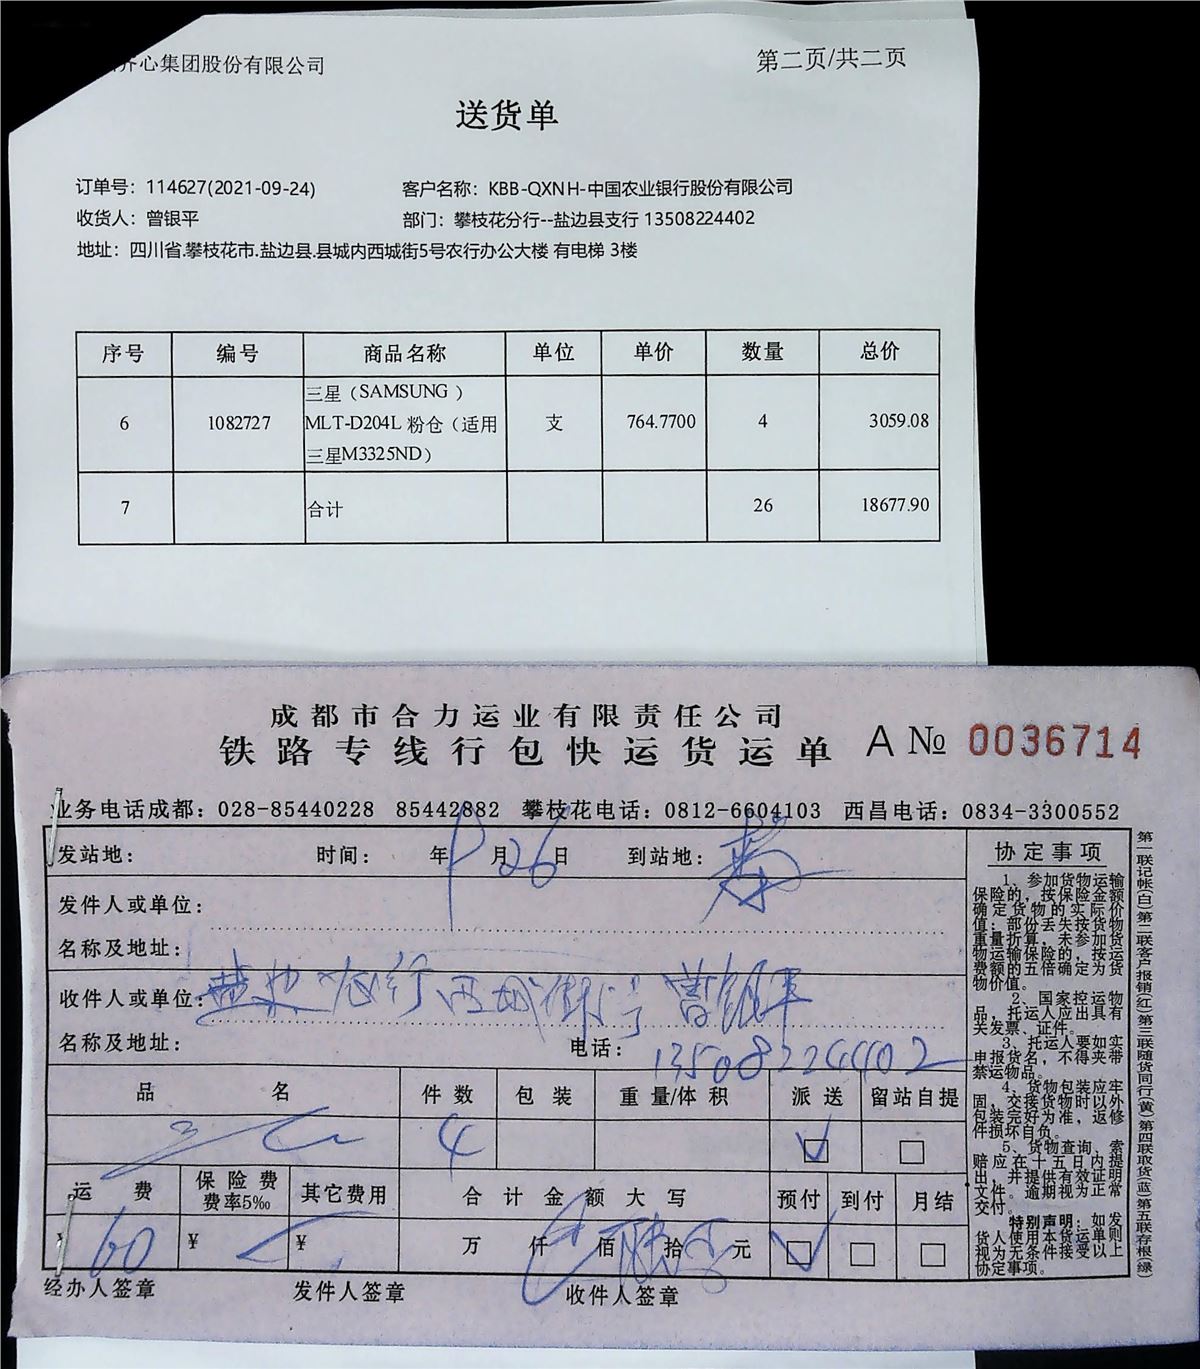 齐心集团股份有限公司
第二页/共二页
送货单
订单号：114627(2021-09-24)
客户名称：KBB-QXNH-中国农业银行股份有限公司
收货人：曾银平
部门：攀枝花分行--盐边县支行 13508224402
地址：四川省.攀枝花市.盐边县.县城内西城街5号农行办公大楼 有电梯 3楼
序号 编号 商品名称 单位 单价 数量 总价
三星（SAMSUNG ）
6 1082727 MLT-D204L 粉仓（适用 支 764.7700 4 3059.08
三星M3325ND）
7 合计 26 18677.90
成都市合力运业有限责任公司
铁路专线行包快运货运单 A № 0036714
业务电话成都：028-85440228 85442882 攀枝花电话：0812-6604103 西昌电话：0834-3300552
发站地： 时间： 年 9 月 26 日 到站地：
发件人或单位：
名称及地址：
收件人或单位：盐边农行西城街5号 曾银平
名称及地址： 电话：13508224402
品 名 件数 包装 重量/体积 派送 留站自提
4
运 费 保险费 费率5‰ 其它费用 合计金额大写 预付 到付 月结
¥ 60 ¥ ¥ 万 仟 佰 拾 元
经办人签章 发件人签章 收件人签章
协定事项
1、参加货物运输
保险的，按保险金额
确定货物的实际价
值；部份丢失按货物
重量折算，未参加货
物运输保险的，按运
费额的五倍确定为货
物价值。
2、国家控运物
品，托运人应出具有
关发票、证件。
3、托运人要如实
申报货名，不得夹带
禁运物品。
4、货物包装应牢
固，交接货物时以外
包装完好为准，返修
件损坏自负。
5、货物查询、索
赔应在十五日内提
出，并提供有效证明
文件。逾期视为正常
交付。
特别声明：如发
货人使用本货运单则
视为无条件接受以上
协定事项。
第一联记帐(白)第二联客户报销(红)第三联随货同行(黄)第四联取货(蓝)第五联存根(绿)